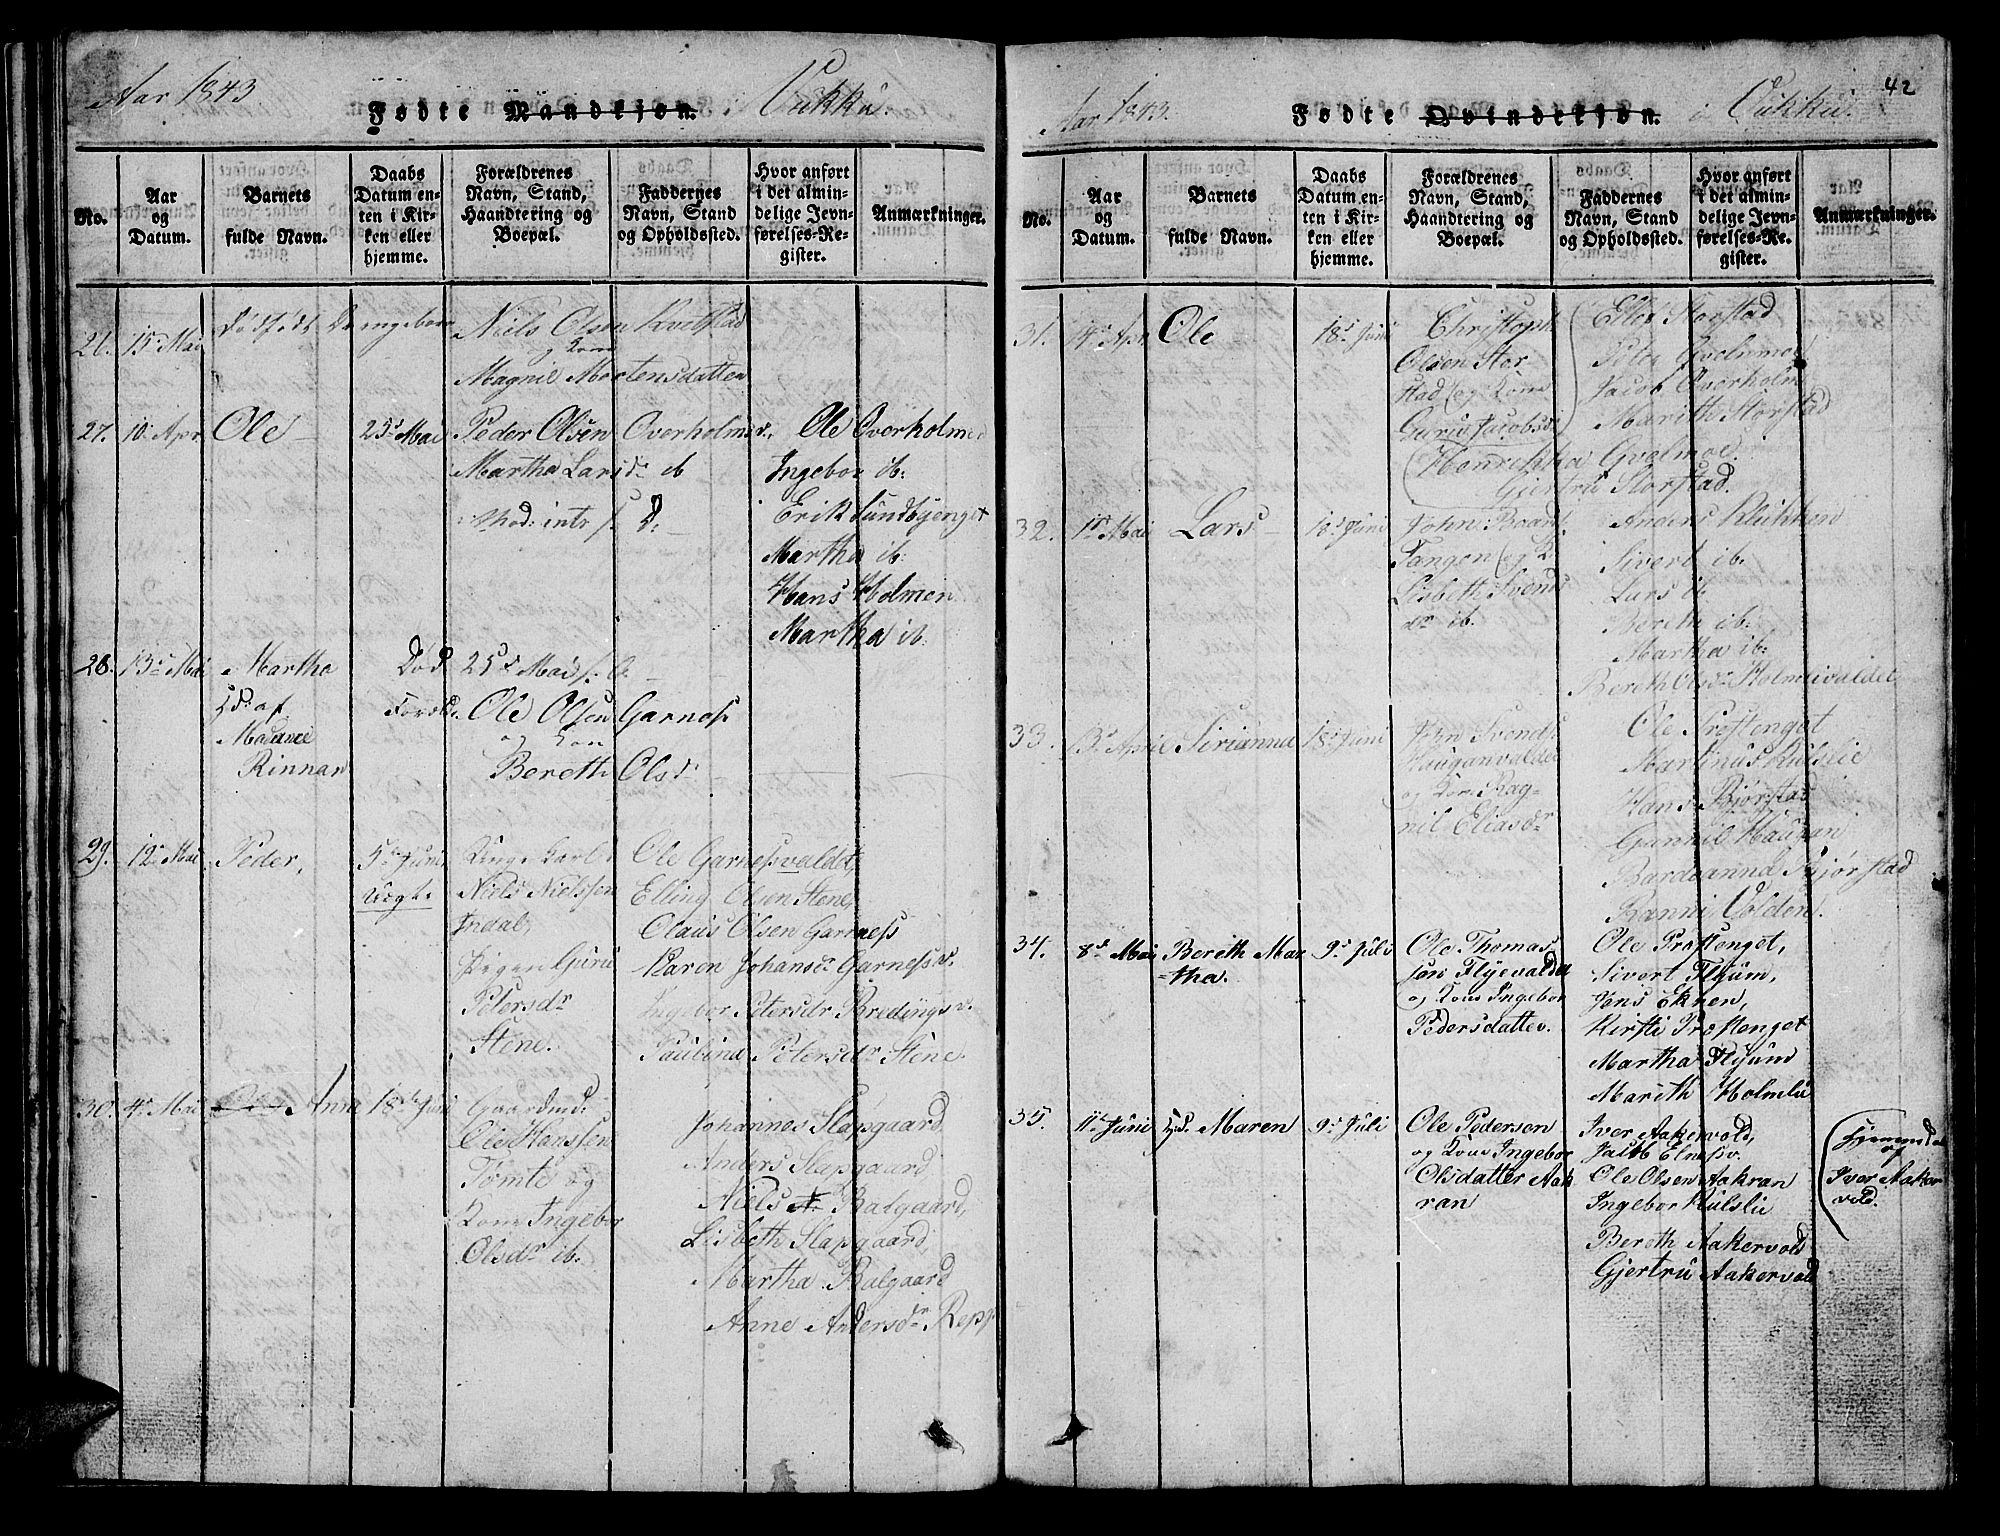 Aar 1843
Fødte Mandkjøn.
Vukku.
No.
Aar og Datum.
Barnets fulde Navn.
Daabs Datum enten i Kirken eller hjemme.
Forældrenes Navn, Stand, Haandtering og Boepæl.
Faddernes Navn, Stand og Opholdssted.
Hvor anført i det almindelige Jevnførelses-Register.
Anmærkninger.
26. 15 Mai
Dødfødt Drengebarn
Niels Olsen Kvelstad
og Kone
Magnil Mortensdatter
27. 10. Apr. Ole 25de Mai
Peder Olsen Overholmsv.
Martha Larsdr ib
Ole Overholmen
Ingebor ib:
Erik Sundbyenget
Martha ib:
Hans Holmen
Martha ib.
28. 13. Mai Martha
Hd. af
Madame
Rinnan
Død 25de Mai
Foræld:
Ole Olsen Garness
og Kone
Bereth Olsd.
29. 12. Mai Peder, 5te Juni
Uægte
Ungekarl
Niels Nielsen
Indal,
Pigen Guru
Petersdr
Stene.
Ole Garnessvaldet,
Elling Olsen Stene,
Olaus Olsen Garness
Karen Johansdr Garnessv.
Ingebor Petersdr Bredingsv.
Paulina Petersdr Stene.
30. 4. Mai Anna 18de Juni
Gaardmd:
Ole Hanssen
Tømte og
Kone Ingebor
Olsdr ib.
Johannes Slapgaard
Anders Slapgaard
Niels Balgaard,
Lisbeth Slapgaard,
Martha Balgaard
Anne Andersdr Repp
Aar 1843.
Fødte Qvindekjøn.
i Vukku.
42
No.
Aar og Datum.
Barnets fulde Navn.
Daabs Datum enten i Kirken eller hjemme.
Forældrenes Navn, Stand, Haandtering og Boepæl.
Faddernes Navn, Stand og Opholdssted.
Hvor anført i det almindelige Jevnførelses-Re-gister.
Anmærkninger.
31. 14. Apr. Ole 18. Juni
Christoph
Olsen Stor-
stad og Kone
Guru Jacobsd.
Ellev Storstad
Peter Gvelmoe
Jacob Overholm
Marith Storstad
Henrikka Gvelmoe.
Gjertru Storstad.
32. Mai Lars 18. Juni
John Baard
Tangen og K.
Lisbeth Svends
dr ib.
Anders Klukken
Sivert ib:
Lars ib:
Bereth ib:
Martha ib:
Bereth Olsdr Holmsvaldet
33. 13. April Sirianna 18. Juni
John Svends.
Hauganvaldet
og Kone Rag-
nil Eliasdr
Ole Præstenget
Martinus Kulslie
Hans Bjørstad
Gunnil Haugan
Bardoanna Bjørstad
Ranni Volden.
34. 8. Mai Bereth Mar
=tha. 9. Juli
Ole Thomas
sen Flyevaldet
og Kone Ingebor
Pedersdatter.
Ole Præstenget,
Sivert Flyum,
Jens Ekren,
Kirsti Præstenget
Martha Flyum
Marith Holmlie
35. 11. Juni Hd. Maren 9. Juli
Ole Pederson
og Kone Ingebor
Olsdatter Aak
ran
Iver Aakervold,
Jacob Elnessv.
Ole Olsen Aakran
Ingebor Kulslie
Bereth Aakervold
Gjertru Aakervold
Hjemmed.
af
Iver Aaker
vold.